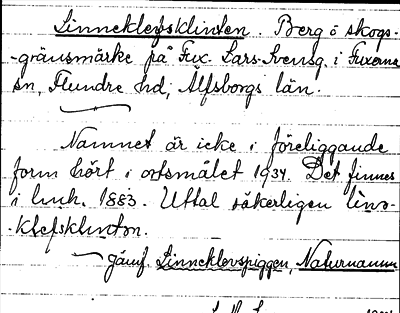 Linneklefsklinten. Berg o skogs-
-gränsmärke på Fux. Lars-Svensg. i Fuxerna
sn, Flundre hd, Älfsborgs län.
Namnet är icke i föreliggande
form hört i ortsmålet 1934. Det finnes
i huh. 1883. Uttal säkerligen
-klefsklinten.
Jämf. Linneklevspiggen, Naturnamn